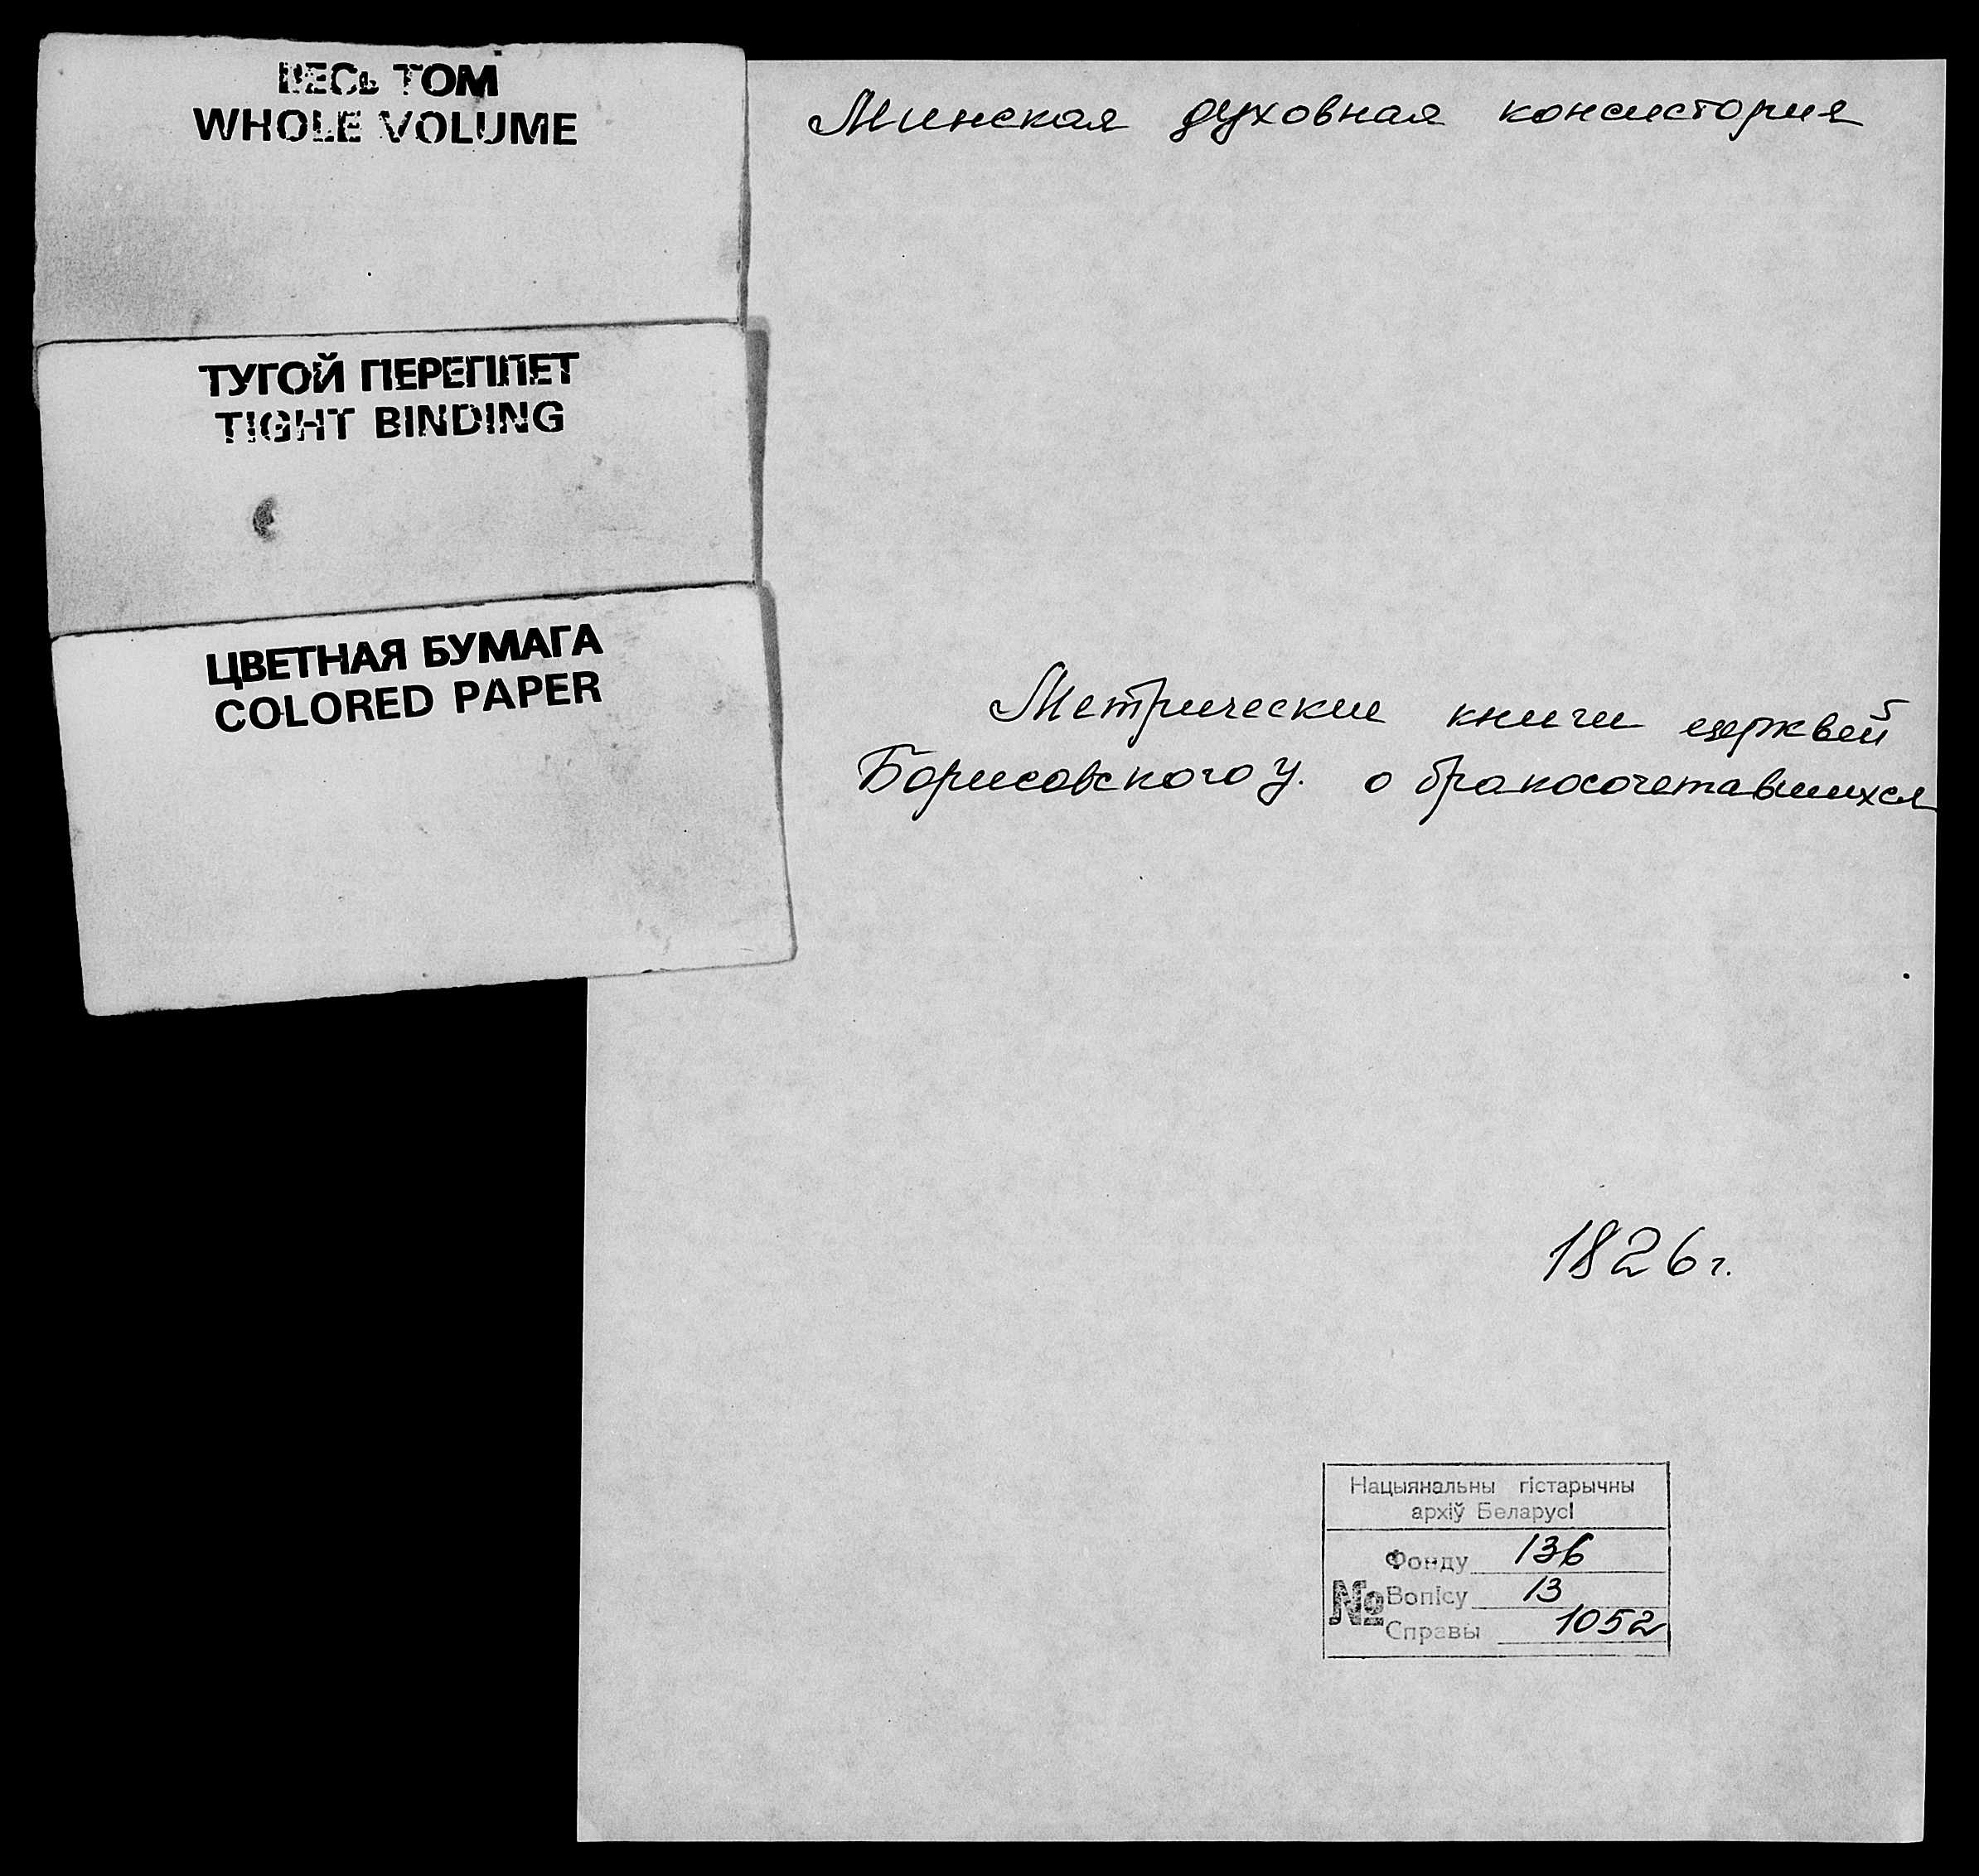 ВЕСЬ ТОМ
WHOLE VOLUME
ТУГОЙ ПЕРЕПЛЕТ
TIGHT BINDING
ЦВЕТНАЯ БУМАГА
COLORED PAPER
Минская духовная консистория
Метрические книги церквей
Борисовского у. о бракосочетавшихся
1826 г.
Нацыянальны гістарычны
архіў Беларусі
Фонду 136
№ Вопісу 13
Справы 1052